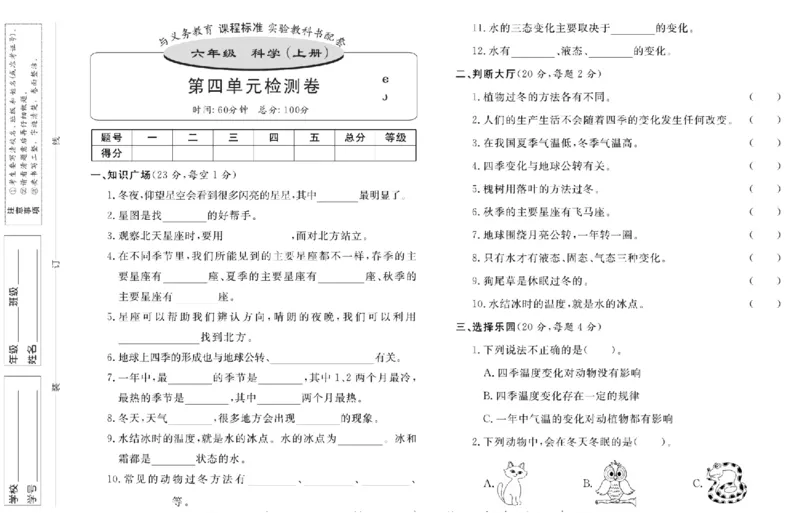 与义务教育 课程标准 实验教科书配套
六年级 科学(上册)
第四单元检测卷
时间:60分钟 总分:100分
题号 一 二 三 四 五 总分 等级
得分
一、知识广场(23分,每空1分)
1.冬夜,仰望星空会看到很多闪亮的星星,其中________最明显了。
2.星图是找________的好帮手。
3.观察北天星座时,要用____________,面对北方站立。
4.在不同季节里,我们所能见到的主要星座都不一样,春季的主
要星座有________座、夏季的主要星座有________座、秋季的
主要星座有________座。
5.星座可以帮助我们辨认方向,晴朗的夜晚,我们可以利用
______________找到北方。
6.地球上四季的形成也与地球公转、__________________有关。
7.一年中,最________的季节是________,其中1、2两个月最冷,
最热的季节是________,其中________两个月最热。
8.冬天,天气________,很多地方会出现________的现象。
9.水结冰时的温度,就是水的冰点。水的冰点为________。冰和
霜都是________状态的水。
10.常见的动物过冬方法有________、________、________、________
等。
11.水的三态变化主要取决于________的变化。
12.水有________、液态、________的变化。
二、判断大厅(20分,每题2分)
1.植物过冬的方法各有不同。 ( )
2.人们的生产生活不会随着四季的变化发生任何改变。 ( )
3.在我国夏季气温低,冬季气温高。 ( )
4.四季变化与地球公转有关。 ( )
5.槐树用落叶的方法过冬。 ( )
6.秋季的主要星座有飞马座。 ( )
7.地球围绕月亮公转,一年转一圈。 ( )
8.只有水才有液态、固态、气态三种变化。 ( )
9.狗尾草是休眠过冬的。 ( )
10.水结冰时的温度,就是水的冰点。 ( )
三、选择乐园(20分,每题4分)
1.下列说法不正确的是( )。
A.四季温度变化对动物没有影响
B.四季温度变化存在一定的规律
C.一年中气温的变化对动植物都有影响
2.下列动物中,会在冬天冬眠的是( )。
A. B. C.
注意事项
线
订
装
班级
年级
姓名
学校
学号